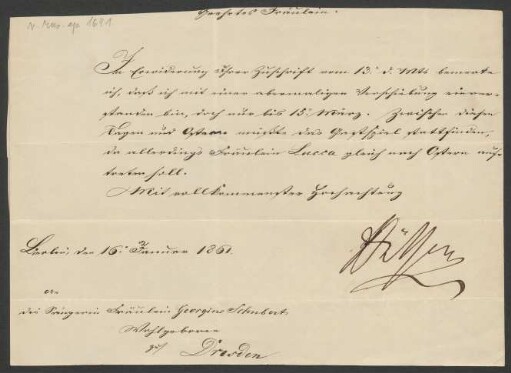 N. Mus. ep. 1631
Geehrtes Fräulein.
In Erwiderung Ihrer Zuschrift vom 13. d. Mts bemerke
ich, daß ich mit einer abermaligen Verschiebung einver-
standen bin, doch nur bis 15. März. Zwischen diesen
Tagen und Ostern müßte das Gastspiel stattfinden,
da allerdings Fräulein Lucca gleich nach Ostern auf-
treten soll.
Mit vollkommenster Hochachtung
Berlin, den 16. Januar 1861.
Hülsen
An
die Sängerin Fräulein Georgine Schubert
Wohlgeboren
zu Dresden